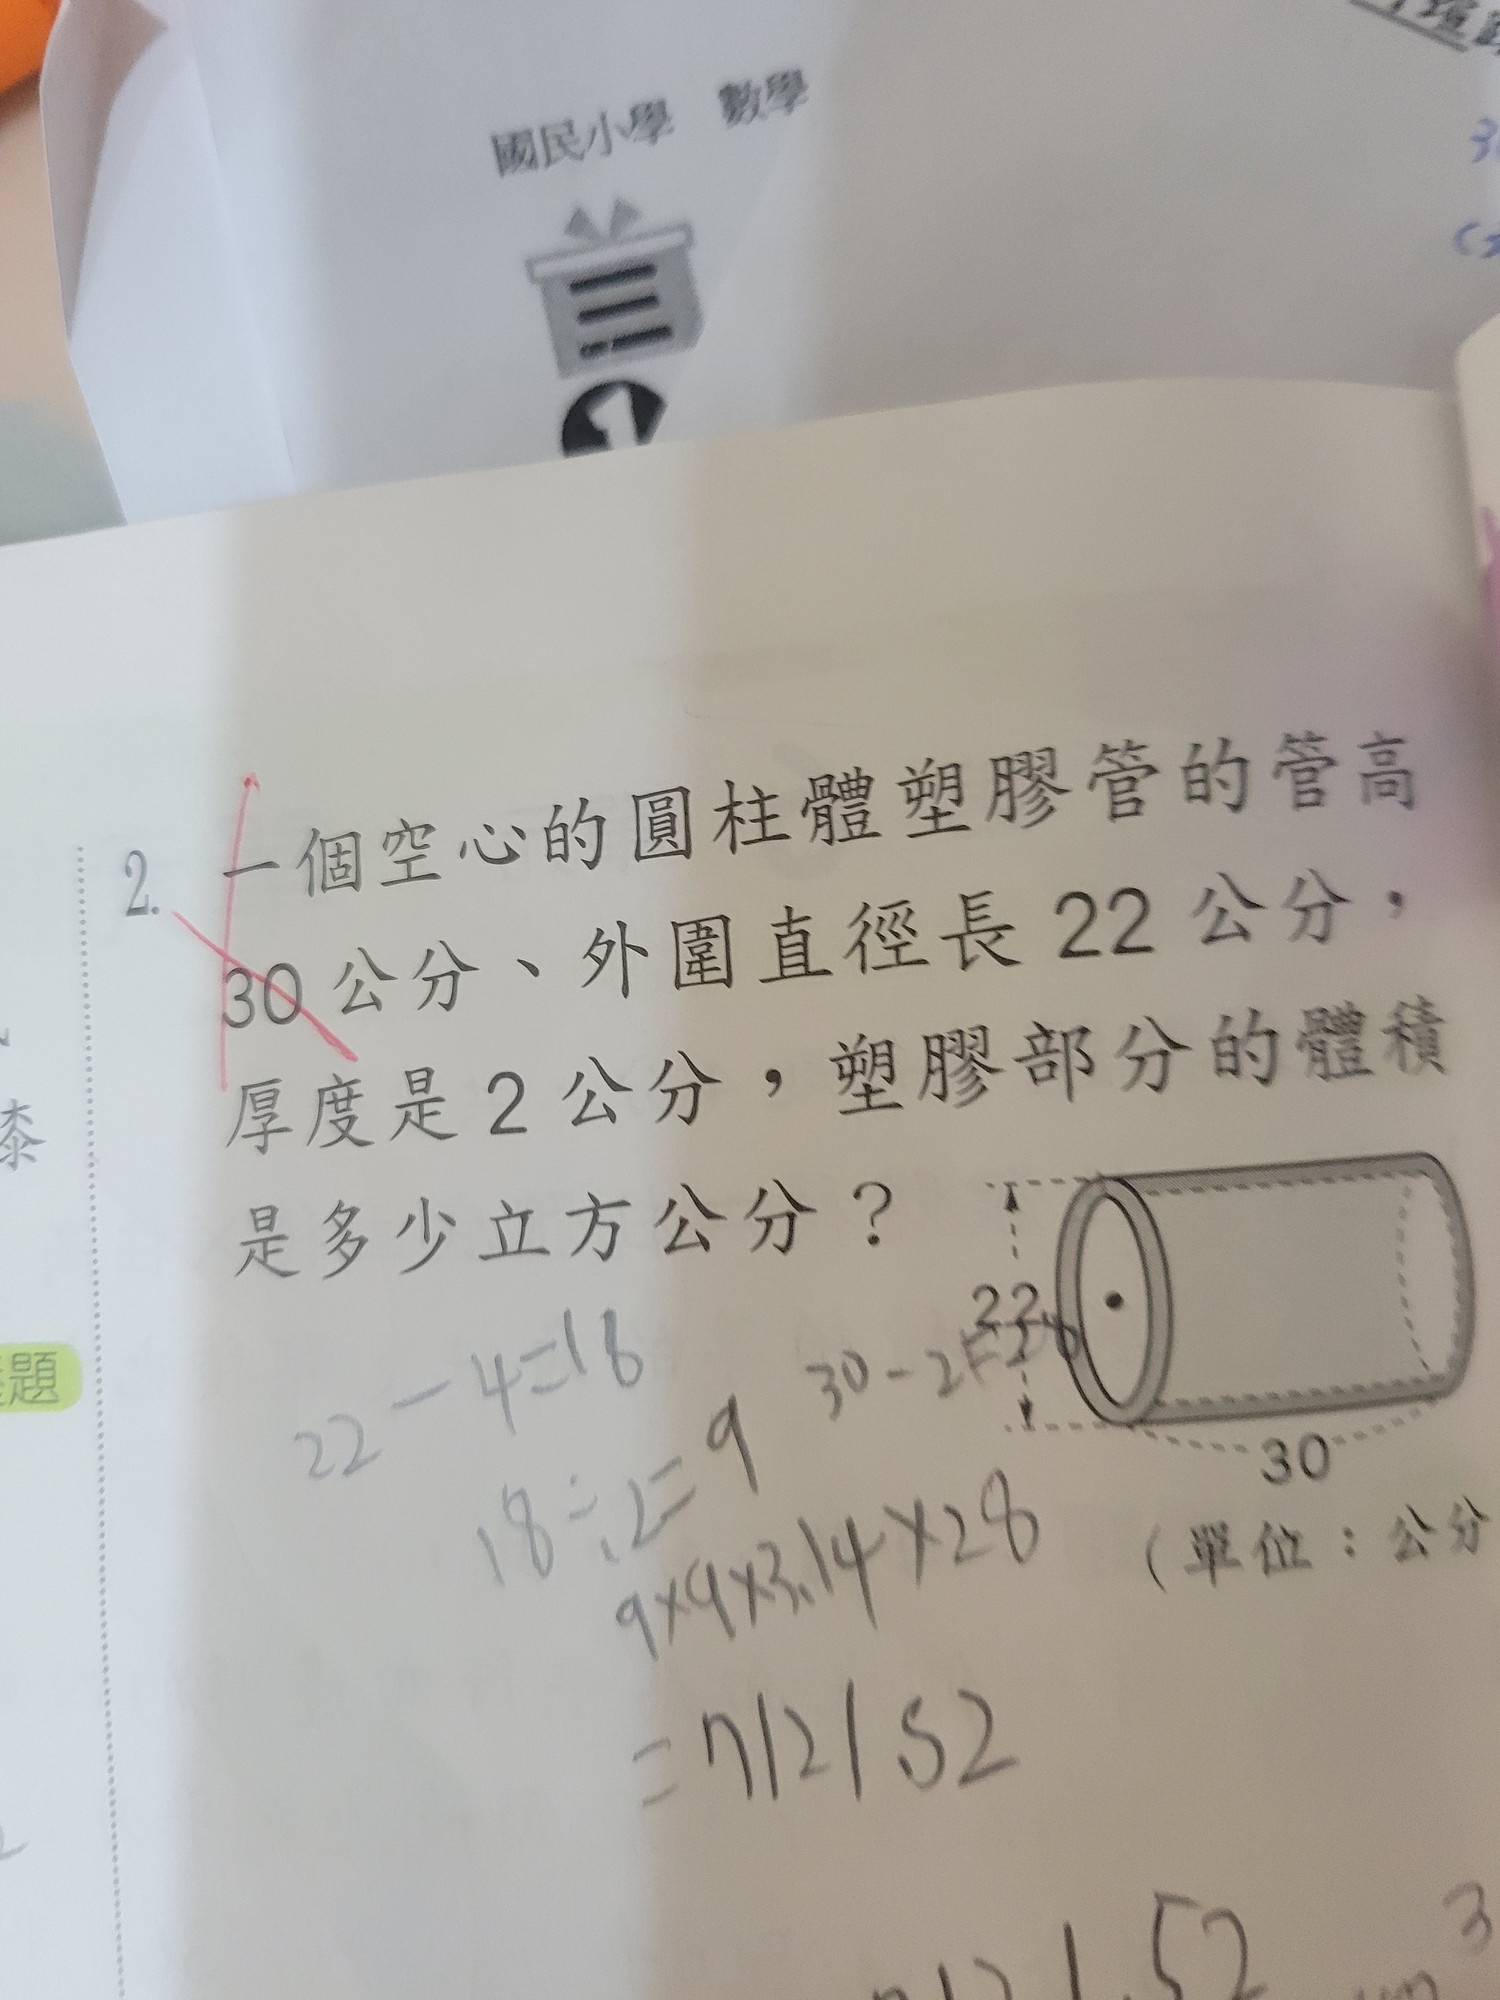 國民小學 數學
2. 一個空心的圓柱體塑膠管的管高
30 公分、外圍直徑長 22 公分，
厚度是 2 公分，塑膠部分的體積
是多少立方公分？
22
30
(單位：公分
漆
題
22-4=18
30-2=28
18÷2=9
9×9×3.14×28
=7121.52
7121.52 cm³